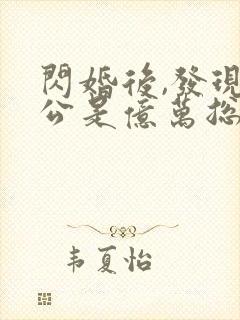 閃婚後,發現
公是億萬
韦夏怡